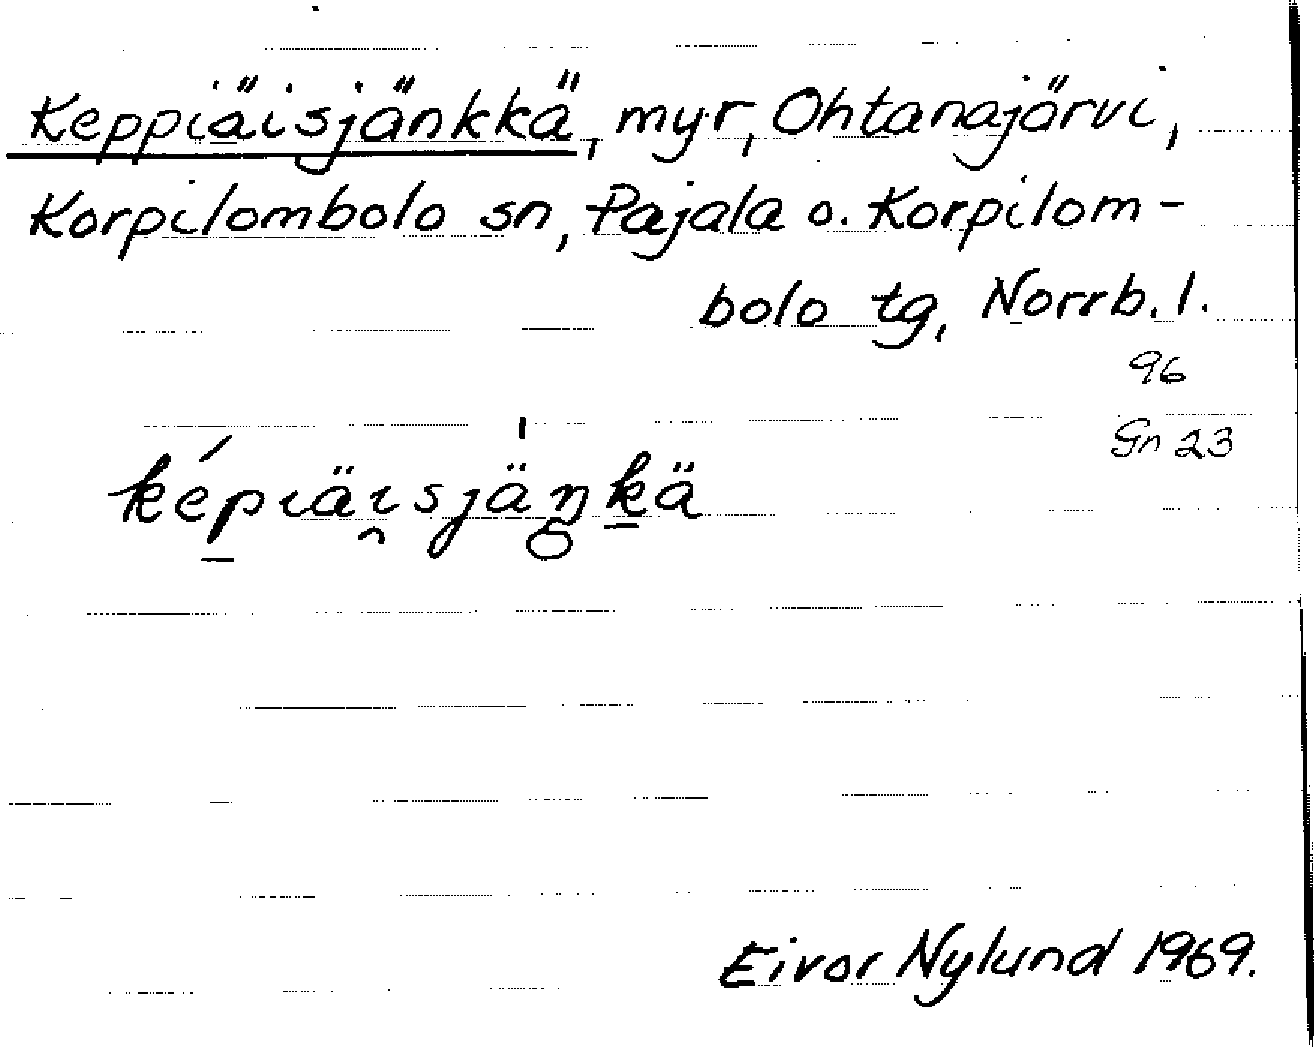 Keppiäisjänkkä, myr, Ohtanajärvi,
Korpilombolo sn, Pajala o. Korpilom-
bolo tg, Norrb. l.
96
Gn 23
ké̱pıäı̯sjäŋ̥ḵä
Eivor Nylund 1969.